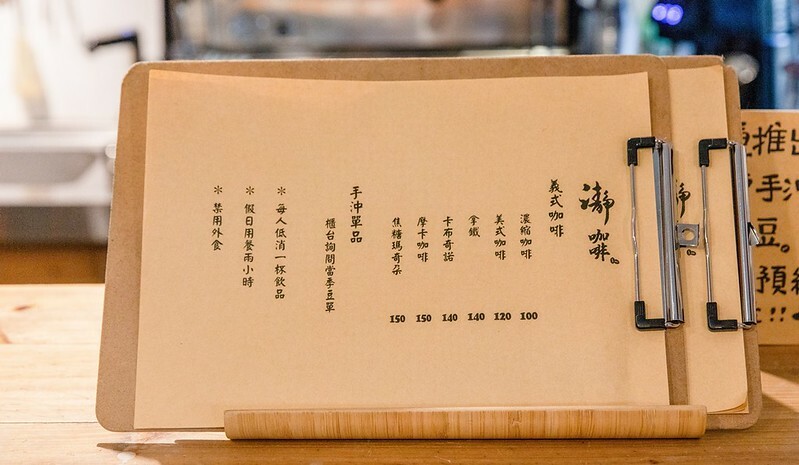 瀞咖啡
義式咖啡
濃縮咖啡 100
美式咖啡 120
拿鐵 140
卡布奇諾 140
摩卡咖啡 150
焦糖瑪奇朵 150
手沖單品
櫃台詢問當季豆單
＊每人低消一杯飲品
＊假日用餐兩小時
＊禁用外食
瀞
推出
手沖
豆。
預約
!!